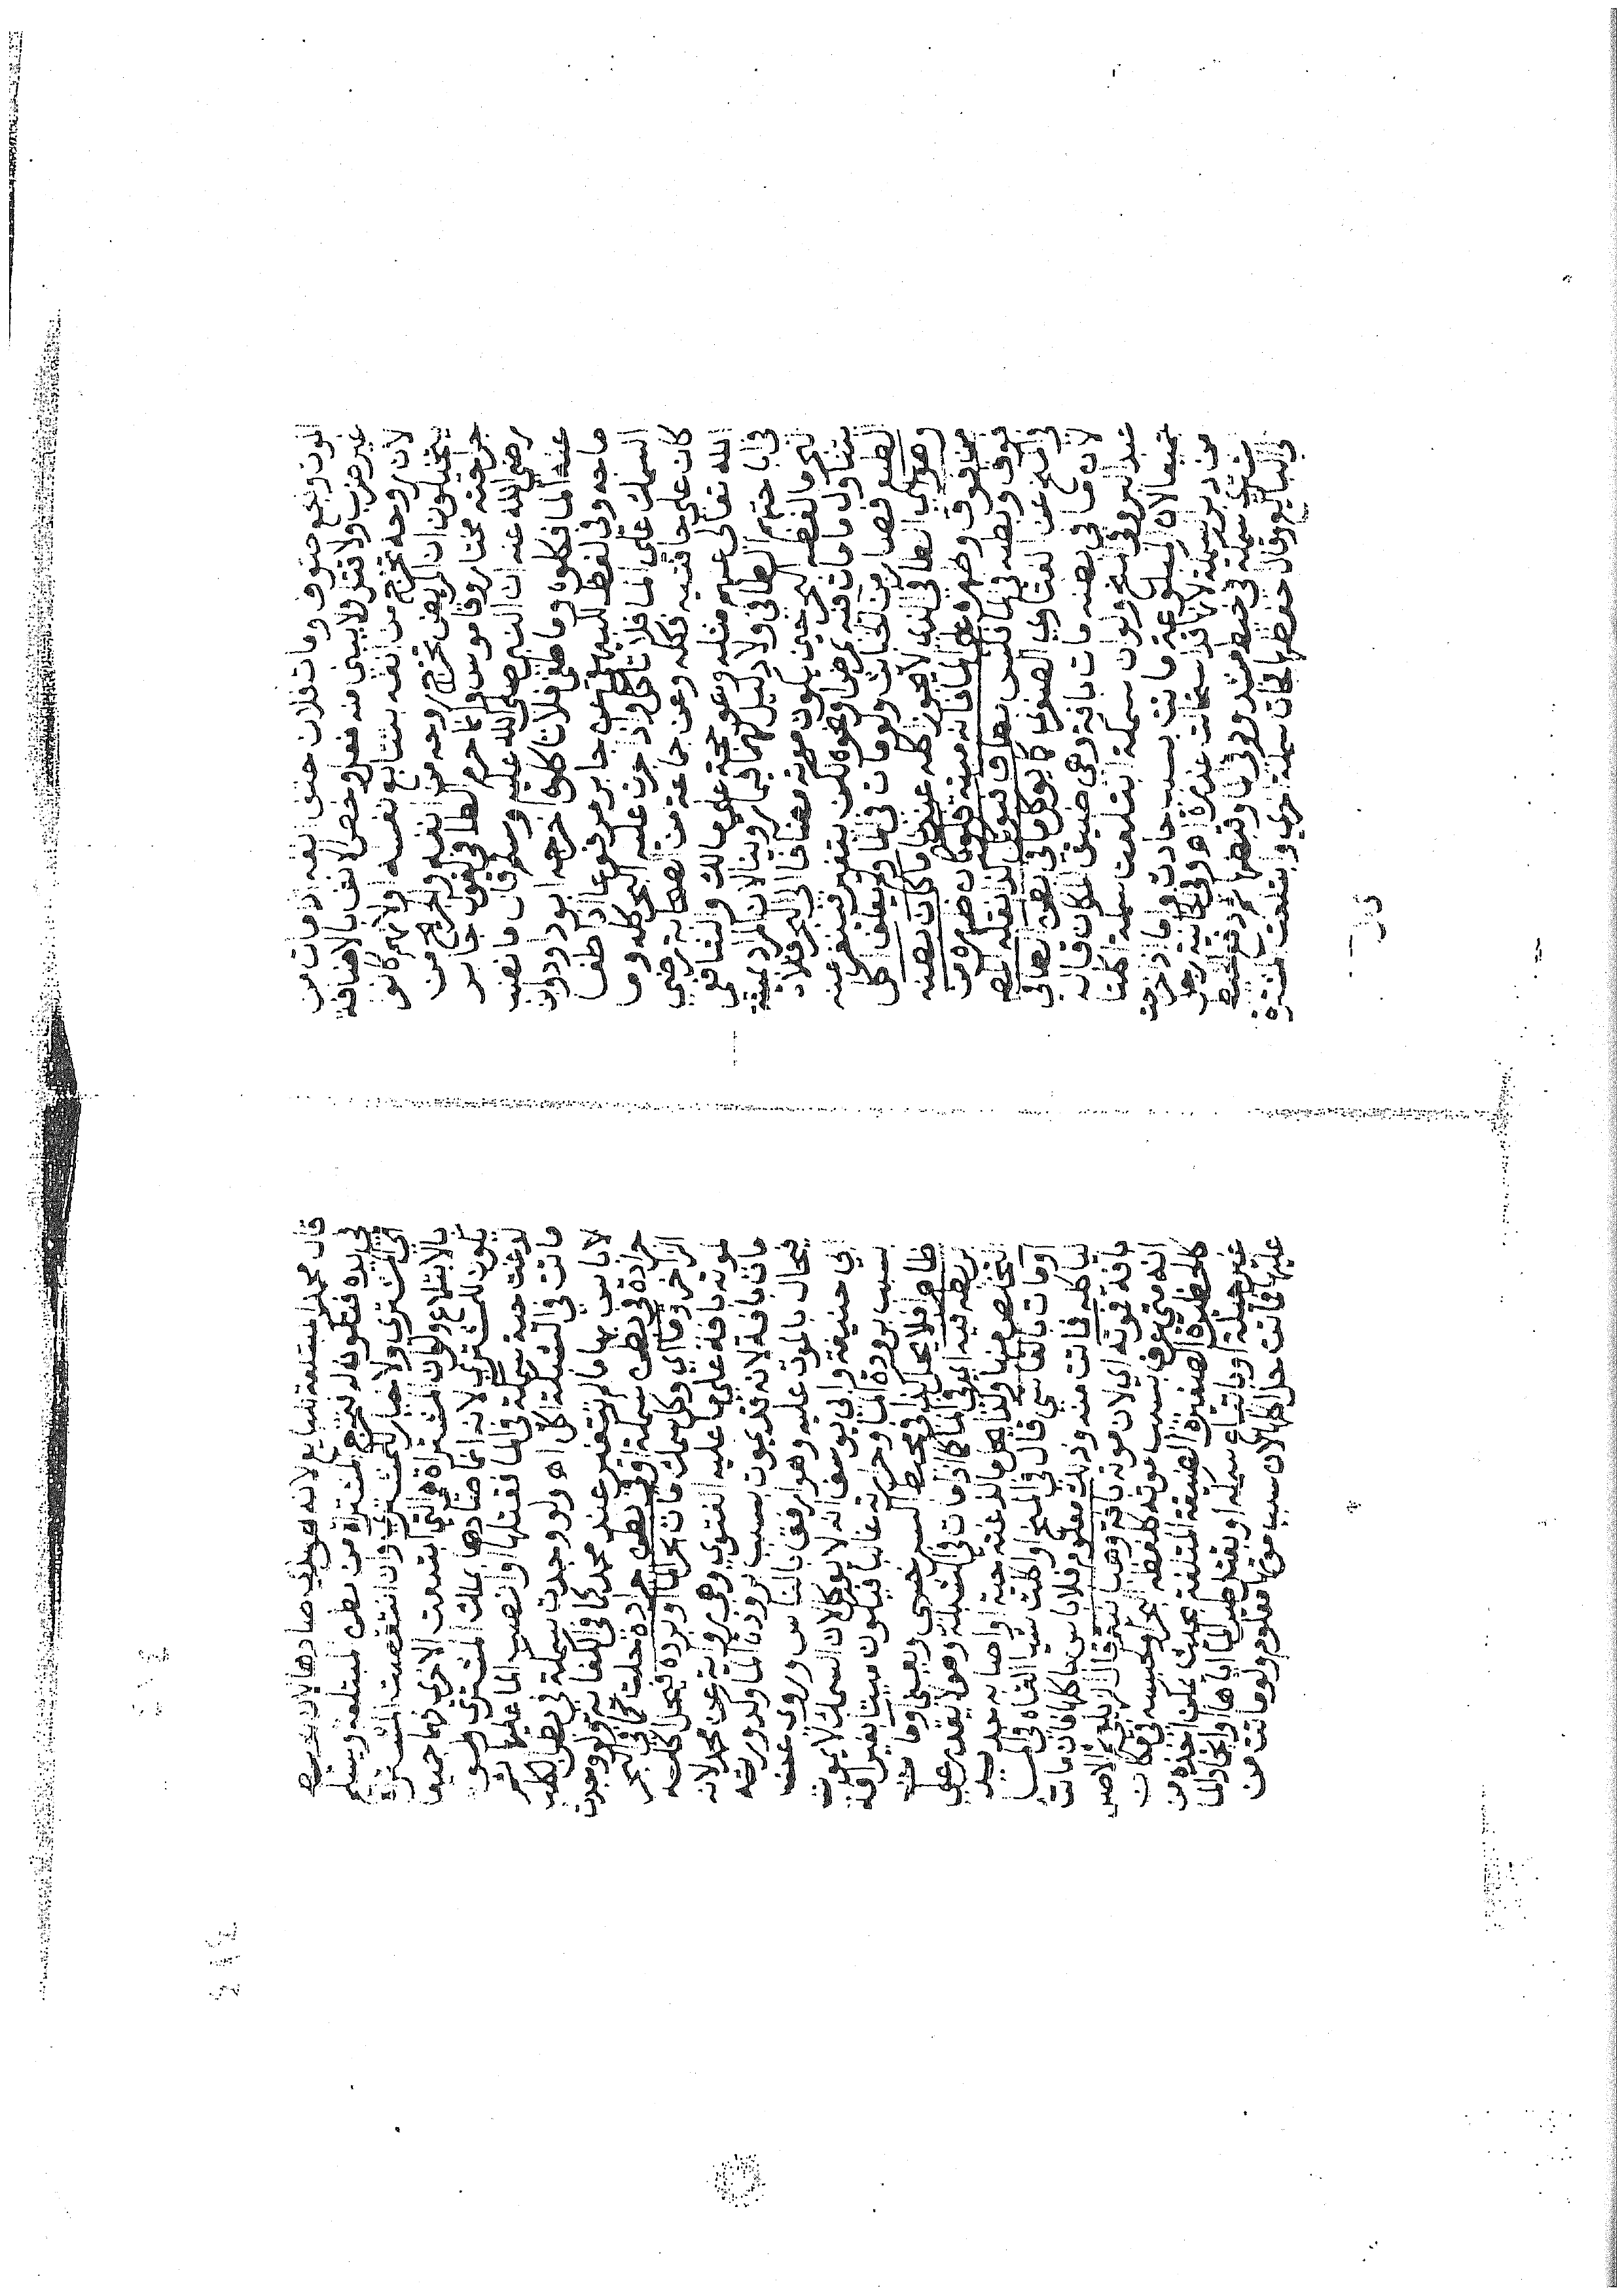 لون وجمع حتوف ومات فلان حتف انفه اذا مات من
غير ضرب ولا قتل ولا يبنى منه فعل وخص الانف بالاضافة
لان روحه تخرج من انفه بتتابع نفسه او لانهم كانوا
يتخيلون ان المريض تخرج روحه من انفه والجريح من
جراحته مختار وقاموس وانما حرم الطافي لقول جابر
رضي الله عنه ان النبي صلى الله عليه وسلم قال ما نضب
عنه الما فكلوه وما طفى فلا تاكلوه اخرجه ابو داود وابن
ماجه وفي لفظ للبيهقي عن جابر مرفوعا اذا طفى
السمك على الما فلا تاكله واذا جزر عليه البحر فكله وما
كان على حافتيه فكله وعن جماعة من الصحابة رضي
الله تعالى عنهم مثله وهو حجة على مالك والشافعي
في اباحتهم الطافي ولا دليل لهما فيما روينا لان المراد بميتة
البحر ما لفظه البحر حتى يكون موته مضافا الى البحر فلا
يتناول ما مات فيه بمرض ونحوه لكن يتغير فينفر عنه
الطبع فصار من الخبائث ولو مات في الما اكل
وهو اي الطافي الذي لا يجوز اكله عندنا ما كان بطنه
من فوق وظهره على الما فانه ميتة فلو كان ظهره من
فوق وبطنه في الما فليس بطاف فيوكل كذا نقله المص
في المنح عن الفتاوي الصغرى كما يوكل ما في بطن الطافي
لان ما في بطنه مات بافة وهي ضيق المكان قاله
عبد البر وفي المنح ولو ان سمكة ابتلعت سمكة اكلتا
جميعا لان المبلوعة ماتت بسبب حادث واما اذا خرجت
من دبر سمكة لا لانها قد استحالت عذرة اه وفي الخانية رجل
اشترى سمكة في خيط مشدودة في الما وقبضها ثم دفع الخيط
الى البايع وقال احفظها فجات سمكة اخرى وابتلعت المشتراة
قال محمد المبتلعة للبايع لانه هو الذي صادها لان الخيط
في يده فتكون له تخرج المشتراة من بطن المبتلعة ويسلم
الى المشتري ولا خيار للمشتري وان انتقصت المشتراة
بالابتلاع ولو ان المشتراة هي التي ابتلعت الاخرى فهما جميعا
يكون للمشتري لانه انما صادها بملك المشتري ولو
لدغت حية سمكة في الما فقتلها او نضب الما عليها او
ماتت في الشبكة اكل اه ولو وجدت سمكة في بطن
لا باس بها ما لم تتغير عند محمد كما في الكفاية ولو وجدت
جرادة في بطن سمكة او في بطن جرادة حلت كما في البحر
الزاخر وما اي وكل سمك مات بحر الما او برده فيحل اكله
لموته بافة على ما عليه الفتوى وهي رواية عن محمد لانه
مات بافة لانه قد يموت بسبب برودة الما وكدورته
فيحال بالموت عليه وهو ارفق بالناس وروي عند
ابي حنيفة وابي يوسف انه لا يوكل لان السمك لا يموت
بسبب برودة الما وحرارته غالبا فيكون ميتا بغير افة
ظاهرة فلا يحل كذا في محيط السرخسي
بربطه فيه اي في الما كما اذا مات في الشبكة وهو لا يقدر على
التخلص منها وكذا يحل ما لدغته حية او اصابه حديد
او مات بالقا شي قال في المنح او اكلت شيا القاه في الما
لياكله فماتت منه وذلك معلوم فلا باس باكلها فان مات
بافة فموته اي لان موته بافة وهنا قال الزيلعي الاصل
انه متى عرف بسبب موته كلفظه البحر وحبسه في مكان
كالحظيرة الصغيرة الضيقة بحيث يمكن اخذه من
غير حيلة او بابتلاع سمكة او بقتل طير الما اياها او انجماد الما
عليها فماتت حل اكلها لان سبب موتها معلوم ولو ماتت من